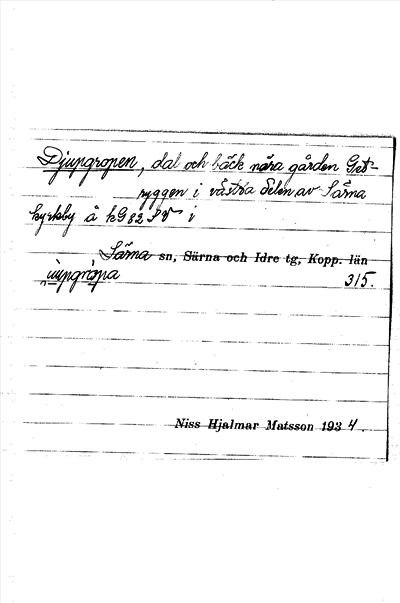 Djupgropen, dal och bäck nära gården Get-
ryggen i västra delen av Särna
kyrkby å kG82SV i
Särna sn, Särna och Idre tg, Kopp. län
315.
Niss Hjalmar Matsson 1934.